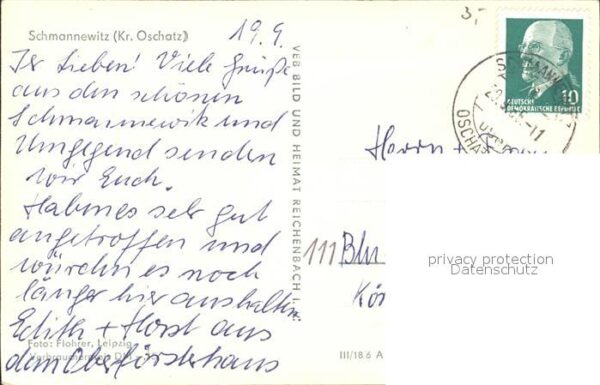 Schmannewitz (Kr. Oschatz)
19.9.
Ihr Lieben! Viele Grüße
aus den schönen
Schmannewitz und
Umgegend senden
wir Euch.
Haben es sehr gut
angetroffen und
würden es noch
länger hier aushalten.
Edith + Horst aus
dem Oberförsterhaus
Foto: Flohrer, Leipzig
Verbraucherpreis DM
VEB BILD UND HEIMAT REICHENBACH I.
III/18.6 A
3,-
DEUTSCHE
DEMOKRATISCHE REPUBLIK
10
OSCHA
Herrn +
111 Bln
privacy protection
Datenschutz